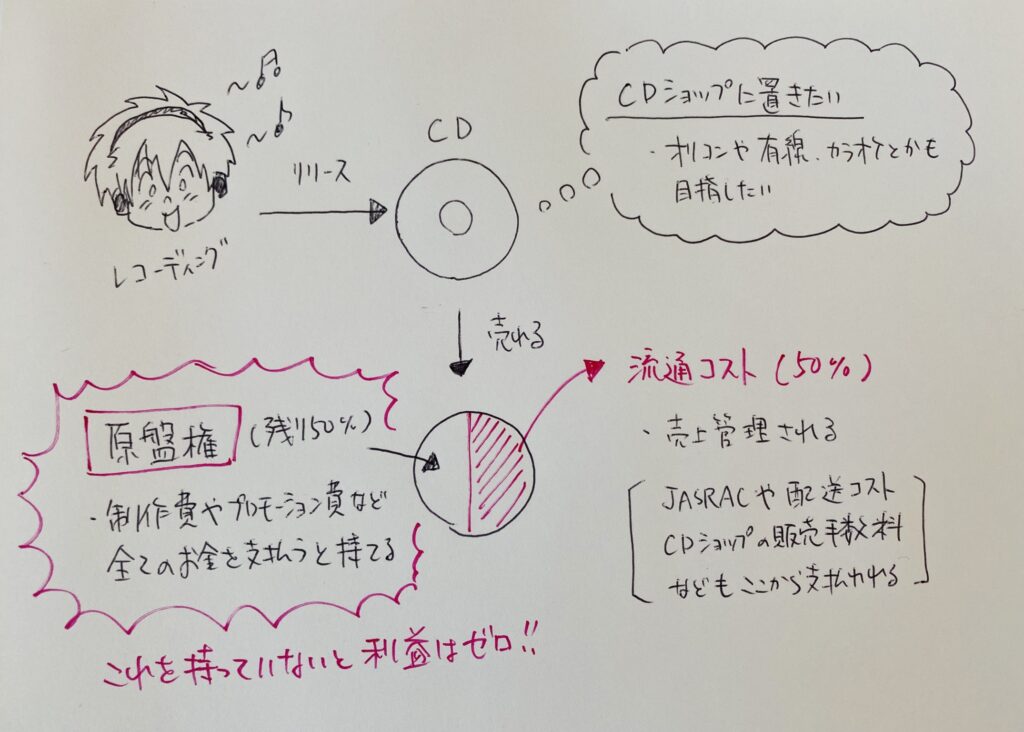 レコーディング
リリース
CD
CDショップに置きたい
・オリコンや有線、カラオケとかも
目指したい
売れる
流通コスト(50%)
・売上管理される
JASRACや配送コスト
CDショップの販売手数料
などもここから支払われる
原盤権(残り50%)
・制作費やプロモーション費など
全てのお金を支払うと持てる
これを持っていないと利益はゼロ!!